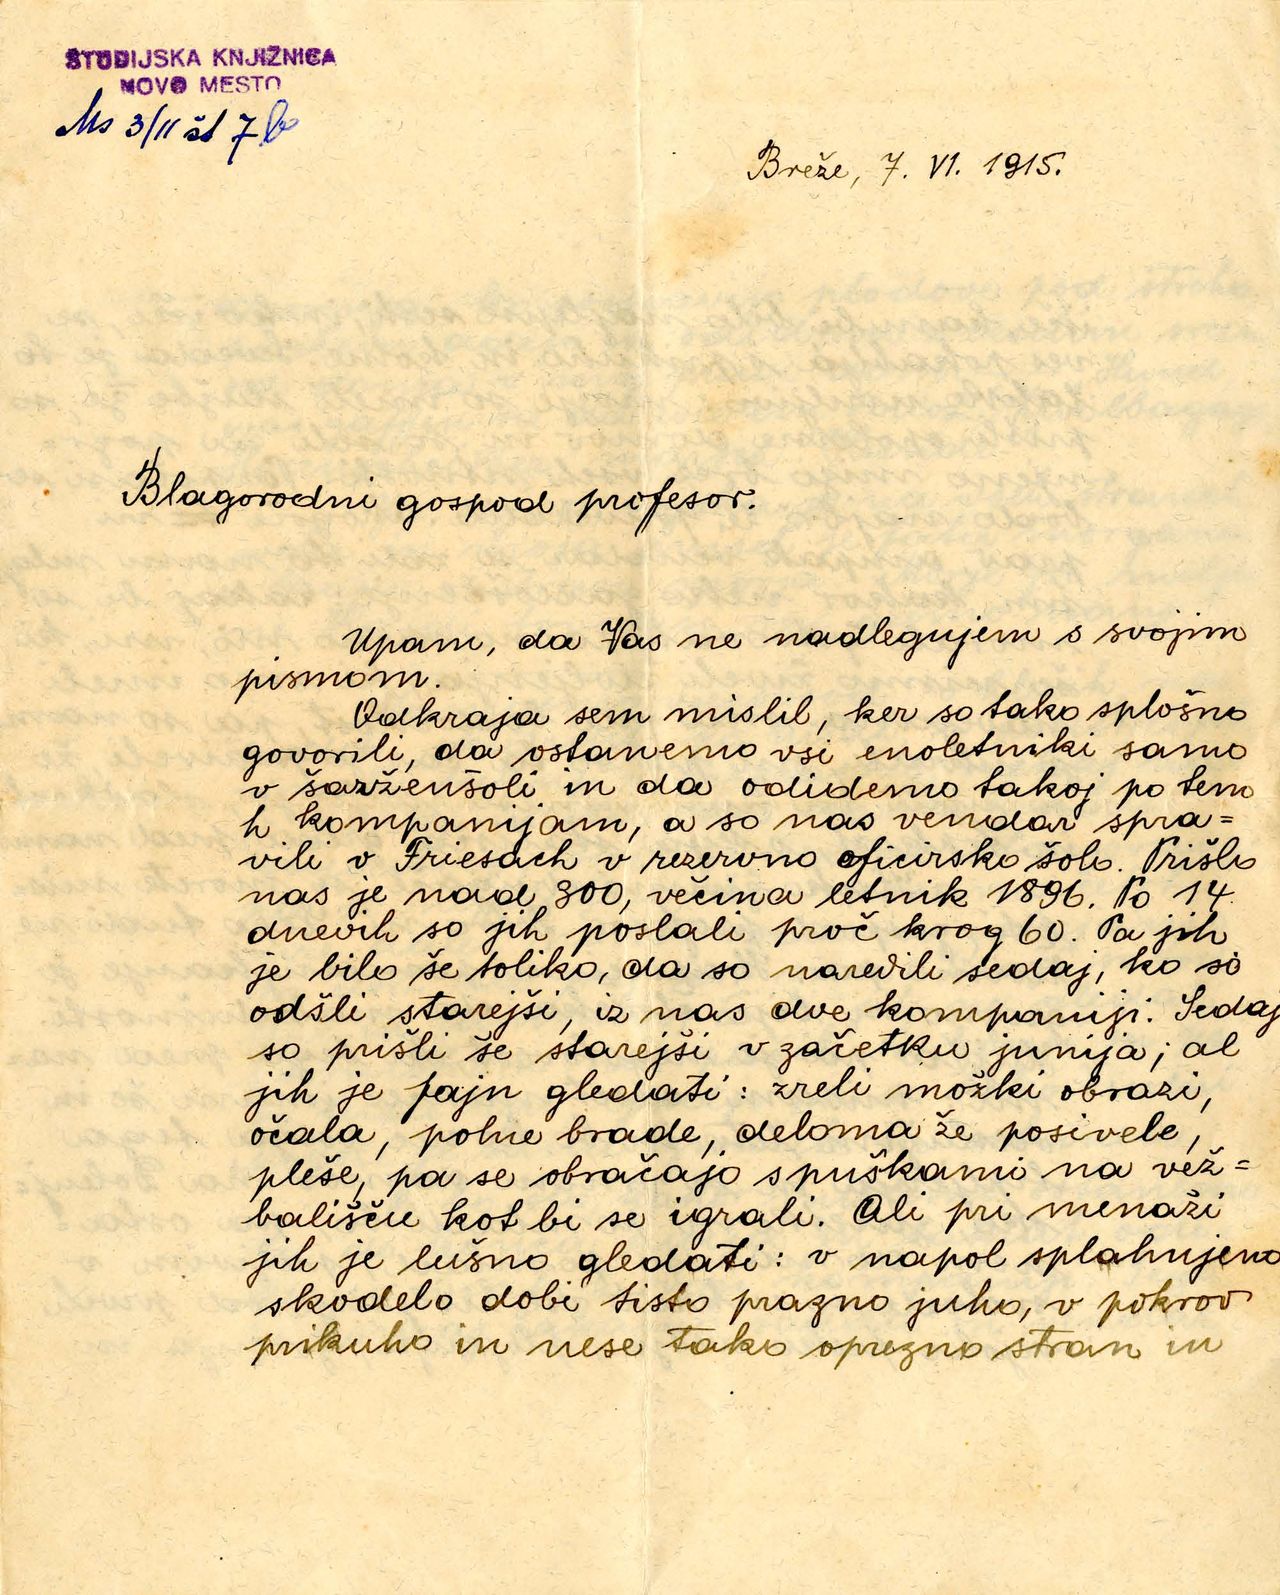 ŠTUDIJSKA KNJIŽNICA
NOVO MESTO
Ms 3/II št 7 b
Breže, 7. VI. 1915.
Blagorodni gospod profesor.
Upam, da Vas ne nadlegujem s svojim
pismom.
Odkraja sem mislil, ker so tako splošno
govorili, da ostanemo vsi enoletniki samo
v šarženšoli in da odidemo takoj po tem
h kompanijam, a so nas vendar spra=
vili v Friesach v rezervno oficirsko šolo. Prišlo
nas je nad 300, večina letnik 1896. Po 14
dnevih so jih poslali proč krog 60. Pa jih
je bilo še toliko, da so naredili sedaj, ko so
odšli starejši, iz nas dve kompaniji. Sedaj
so prišli še starejši v začetku junija; al
jih je fajn gledati: zreli možki obrazi,
očala, polne brade, deloma že posivele,
pleše, pa se obračajo s puškami na vež=
bališču kot bi se igrali. Ali pri menaži
jih je lušno gledati: v napol splahnjeno
skodelo dobi tisto prazno juho, v pokrov
prikuho in nese tako oprezno stran in